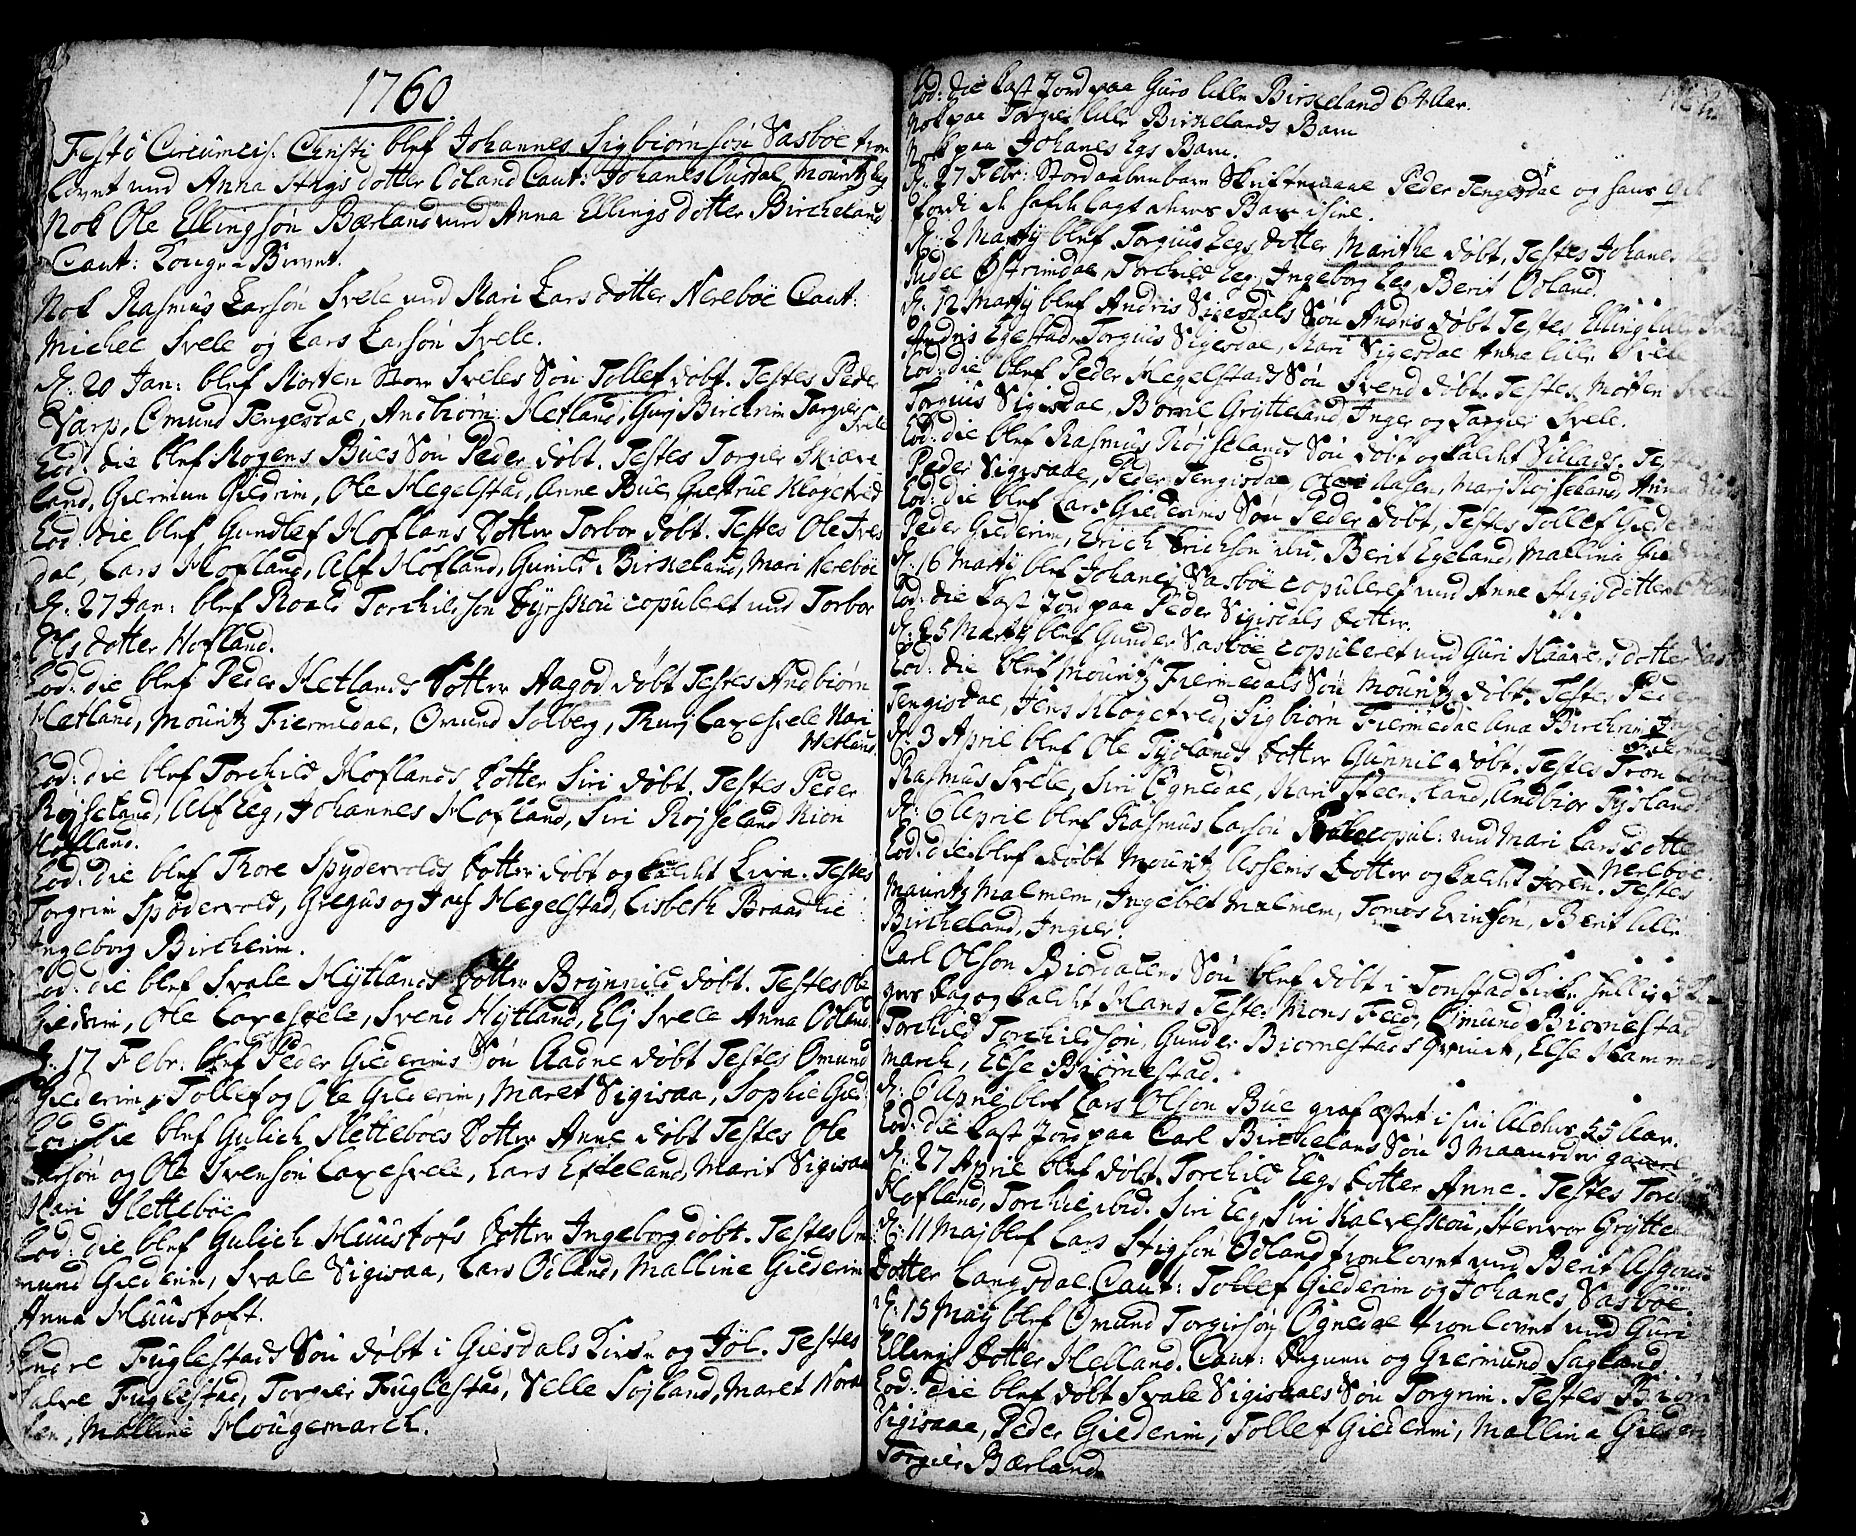 1760.
Festo Circumcis. Christi blef Johannes Sigbiørnsøn Vasbøe tro-
lovet med Anna Stigs dotter Odland Caut: Johanes Ousdal, Mouritz Eeg
Nok Ole Ellingsøn Bærland med Anna Ellings dotter Bircheland
Caut:
Nok Rasmus Larsøn Svele med Mari Lars dotter Nerebøe Caut:
Michel Svele og Lars Larsøn Svele.
D: 20 Jan: blef Morten Store Sveles Søn Tollef døbt. Testes Peder
Varp, Omund Tengesdal, Andbiørn Hetland, Guri Bircherim Torgier
Svele
Eod: die blef Mogens Bues Søn Peder døbt. Testes Torgier Skiæve-
land, Giermun Giedrim, Ole Megelstad, Anne Bue, Giertrue Klogetved
Eod: die blef Gundlef Hoflans Dotter Torbor døbt. Testes Ole Ives
dal, Lars Hofland, Alf Hofland, Gunild Birkeland, Mari Nerebøe
D: 27 Jan: blef Roald Torchildsøn copuleret med Torbor
Ols dotter Hofland.
Eod: die blef Peder Hetlands Dotter Aagod døbt Testes Andbiørn
Hetland, Mouritz Fiermedal, Omund Solberg, Thurj Laxesvele Mari
Hetland
Eod: die blef Torchild Hoflands Dotter Siri døbt. Testes Peder
Røjseland, Alf Eeg, Johannes Hofland, Siri Røjseland Mion
Hofland.
Eod: die blef Thore Spydervolds Dotter døbt og kaldet Liva. Testes
Torgrim Spødervold, Gregus og Hegelstad, Lisbeth Braadlie
Ingeborg Bircherim.
Eod: die blef Svale Hytlands Dotter Brynnild døbt. Testes Ole
Giedrim, Ole Laxesvele, Svend Hytland, Elj Svele Anna Odland
D: 17 Febr: blef Peder Giederims Søn Aadne døbt Testes Omund
Giederim, Tollef og Ole Giederim, Maret Sigisaa, Sophie Gied
Eod: die blef Gulich Slettebøes Dotter Anne døbt Testes Ole
Larsøn og Ole Svensøn Laxesvele, Lars Efteland, Marit Sigisaa
Mari Slettebøe
Eod: die blef Gulich Muustofs Dotter Ingeborg døbt. Testes Om
mund Giederim, Svale Sigisaa, Lars Odland, Malline Giederim
Anna Muustoft.
Endre Fuglestads Søn døbt i Giesdals Kirke og Jøl. Testes
Salve Fuglestad, Torgier Fuglestad, Velle Søjland, Maret
Malline Hougemarch.
Eod: die Kast Jord paa Guro lille Birkeland 64 Aar.
Nok paa Torgier lille Birkelands Barn
Nok paa Johanes Egs Barn.
D: 27 Febr: Stod aabenbare Skriftemaal Peder Tengesdal og hans
fordi de hafde lagt deres Barn ihiel.
D: 2 Martij blef Torgius Eegs dotter Marithe døbt, Testes Johanes
Judee Østrimdal, Torchild Eeg, Ingeborg Eeg, Berit Odland.
D: 12 Martij blef Andris Sigesdals Søn Andris døbt Testes Elling lille
Andris Egestad, Torgius Sigesdal, Mari Sigesdal Anna lille Svele
Eod: die blef Peder Megelstads Søn Svend døbt. Testes Morten Svele
Torgius Sigisdal, Børrel Grytteland, Inger og Torgier Svele.
Eod: die blef Rasmus Røjselands Søn døbt og kaldet Villads. Testes
Peder Sigisdal, Peder Tengisdal, Ole Aasen, Mari Røjseland, Anna
Eod: die blef Lars Giederims Søn Peder døbt, Testes Tollef Giederim
Peder Giederim, Erich Erichsøn ibid. Berit Egeland, Mallina
D: 16 Martij blef Johanes Vasbøe copuleret med Anne Stigsdotter
Eod: die Kast Jord paa Peder Sigisdals Dotter.
D: 25 Martij blef Gunder Vasbøe copuleret med Guri Haavers dotter
Eod: die blef Mouritz Fiermedals Søn Mouritz døbt. Testes Peder
Tengisdal, Jens Klogetved, Sigbiørn Fiermedal Bircherim
D: 3 April blef Ole Tyslands Dotter Gunnil døbt. Testes Tron
Rasmus Svele, Siri Ognedal, Mari Steensland, Andbior Tysland
D: 6 April blef Rasmus Larsøn copul: med Mari Lars dotter
Nerebøe.
Eod: die blef døbt Mouritz Assems Dotter og kaldet Joren. Testes
Mauritz Malmem, Ingebret Malmem, Tomos Evinsøn, Berit lille
Bircheland, Ingier.
Carl Olson Biordalens Søn blef døbt i Tonstad Kirke
gers dag og kaldet Hans Testes Mons Feed, Omund Biornestad
Torchild Torchildsøn, Gunder Biornestads qvinde, Else Hammer
march, Else Biørnestad.
D: 6 April blef Lars Olson Bue graf æstet i sin Alders 55 Aar.
Eod: die Kast Jord paa Carl Birchelans Søn 3 Maaneder
D: 27 April blef døbt. Torchild Eegs Dotter Anne. Testes
Hofland, Torchil ibid. Siri Eeg, Siri Stenvor Grytteland
D: 11 Maj blef Lars Stigsøn Odland trolovet med Berit
Dotter Langsdal. Caut: Tollef Giederim og Johanes Vasbøe.
D: 15 Maij blef Omund Torgiersøn Ognedal trolovet med Guri
Ellings Dotter Helland. Caut: Degnen og Giermund Sagland.
Eod: die blef døbt Svale Sigisaaes Søn Torgrim. Testes Biørn
Sigisaae, Peder Giederim, Tollef Giederim, Mallina Giederim
Torgier Bærland